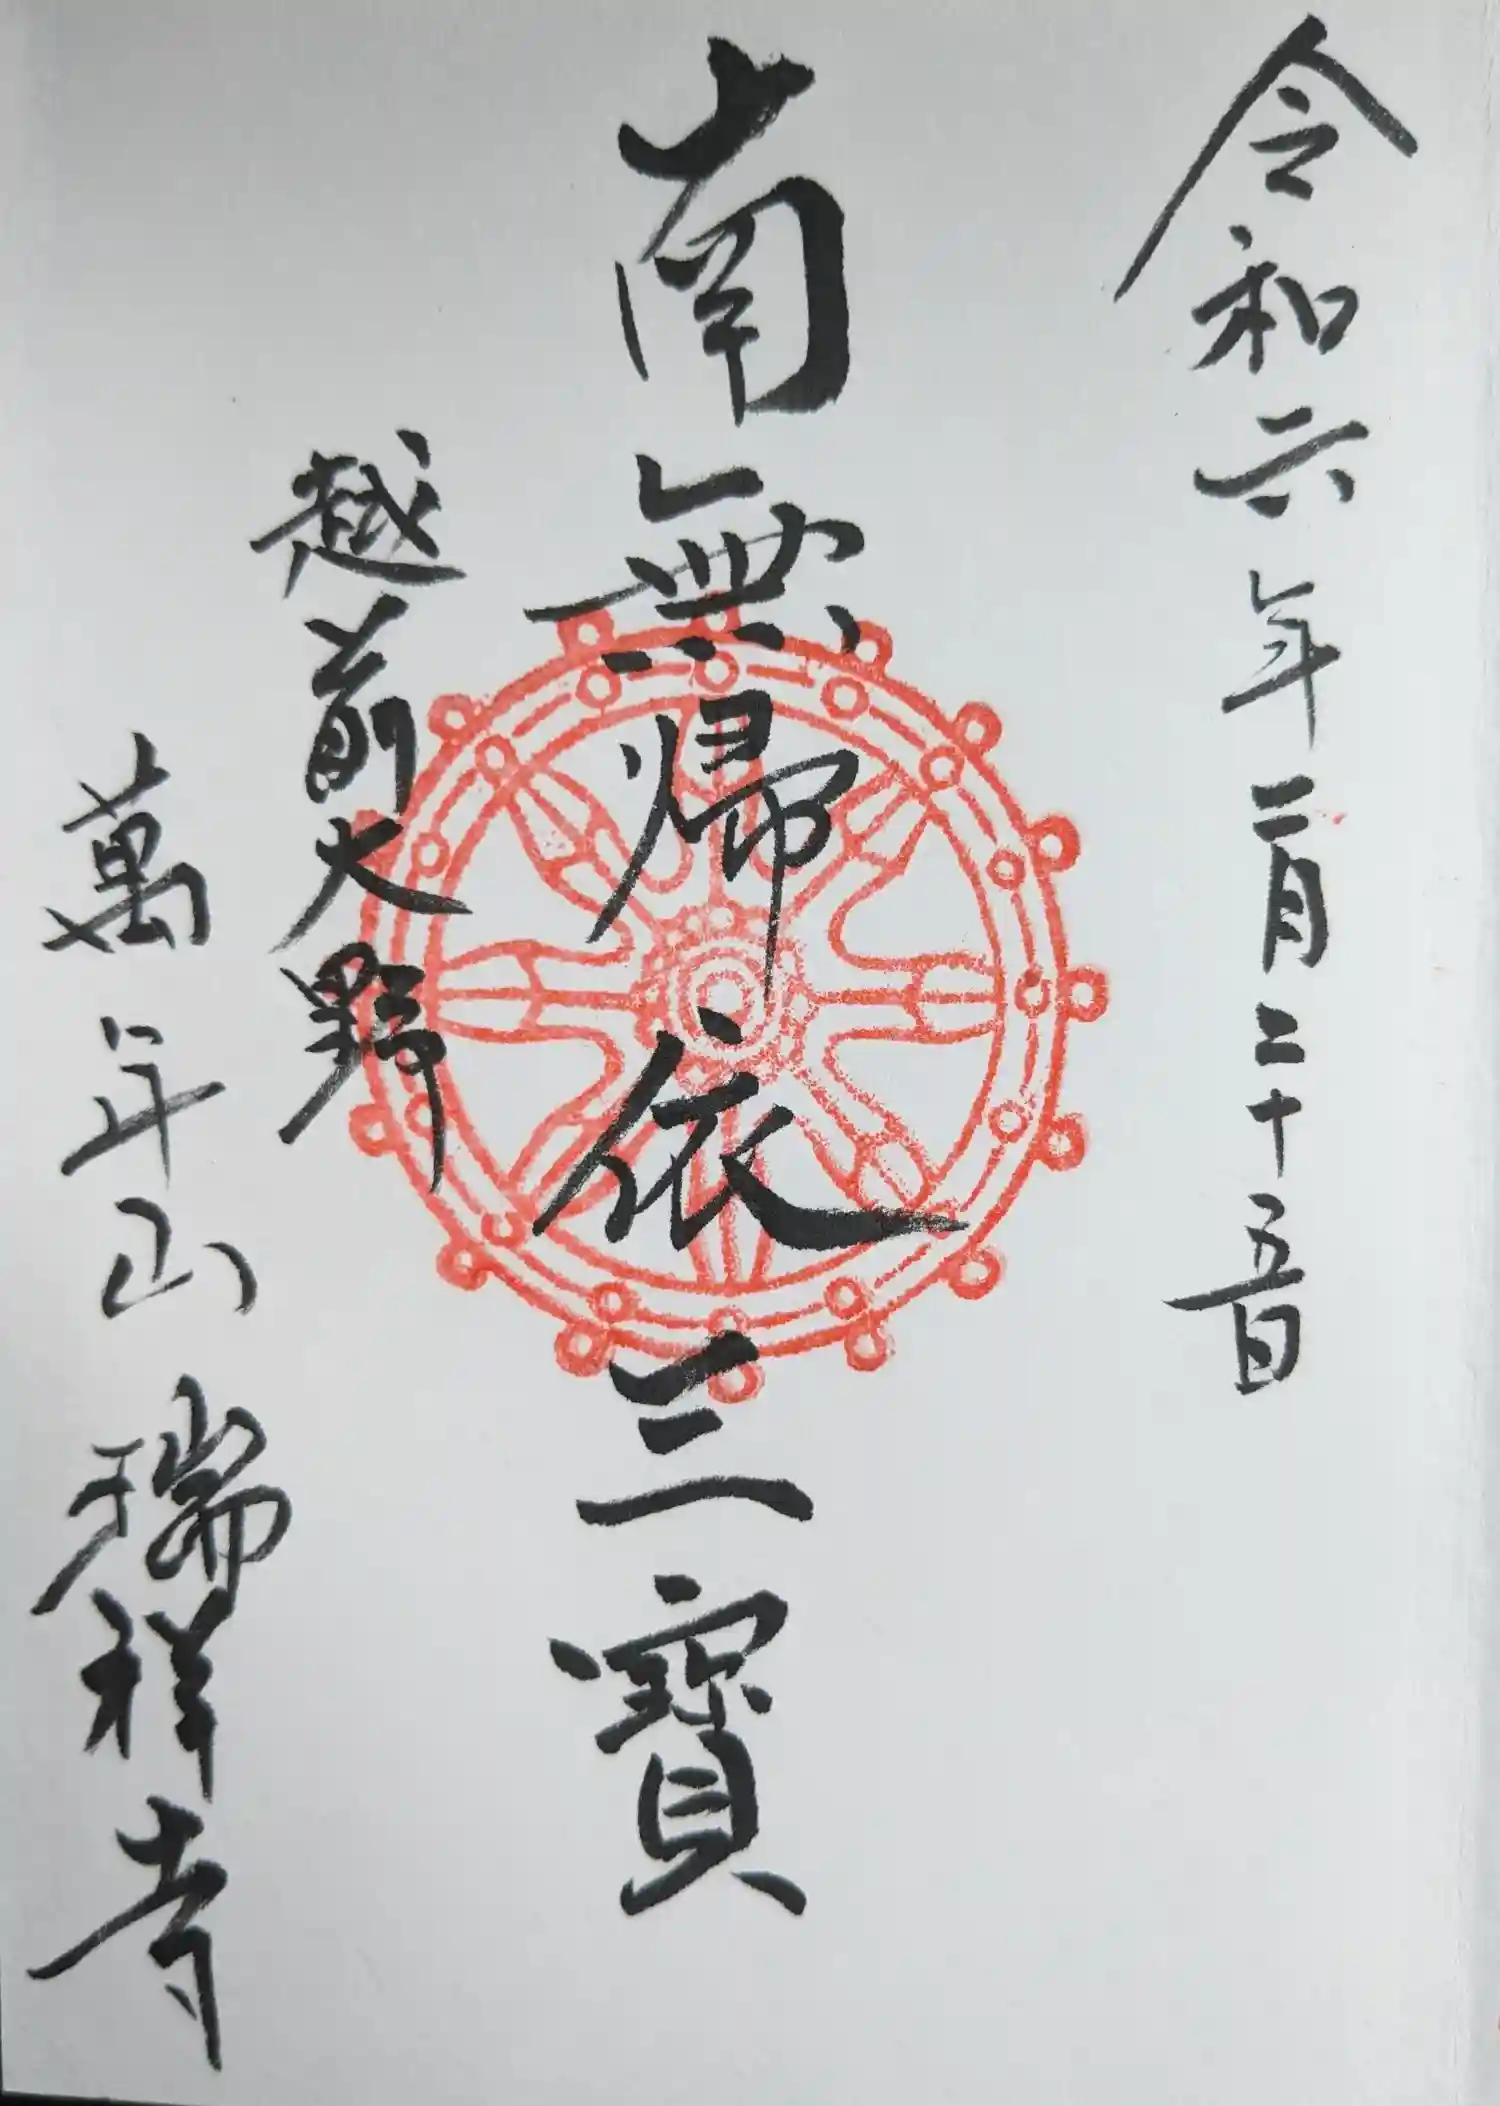 令和六年二月二十五日
南無帰依三寳
越前大野
萬年山 瑞祥寺